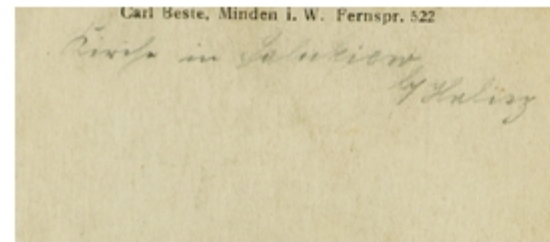 Carl Beste, Minden i. W. Fernspr. 522
Kirche in
b/ Halicz